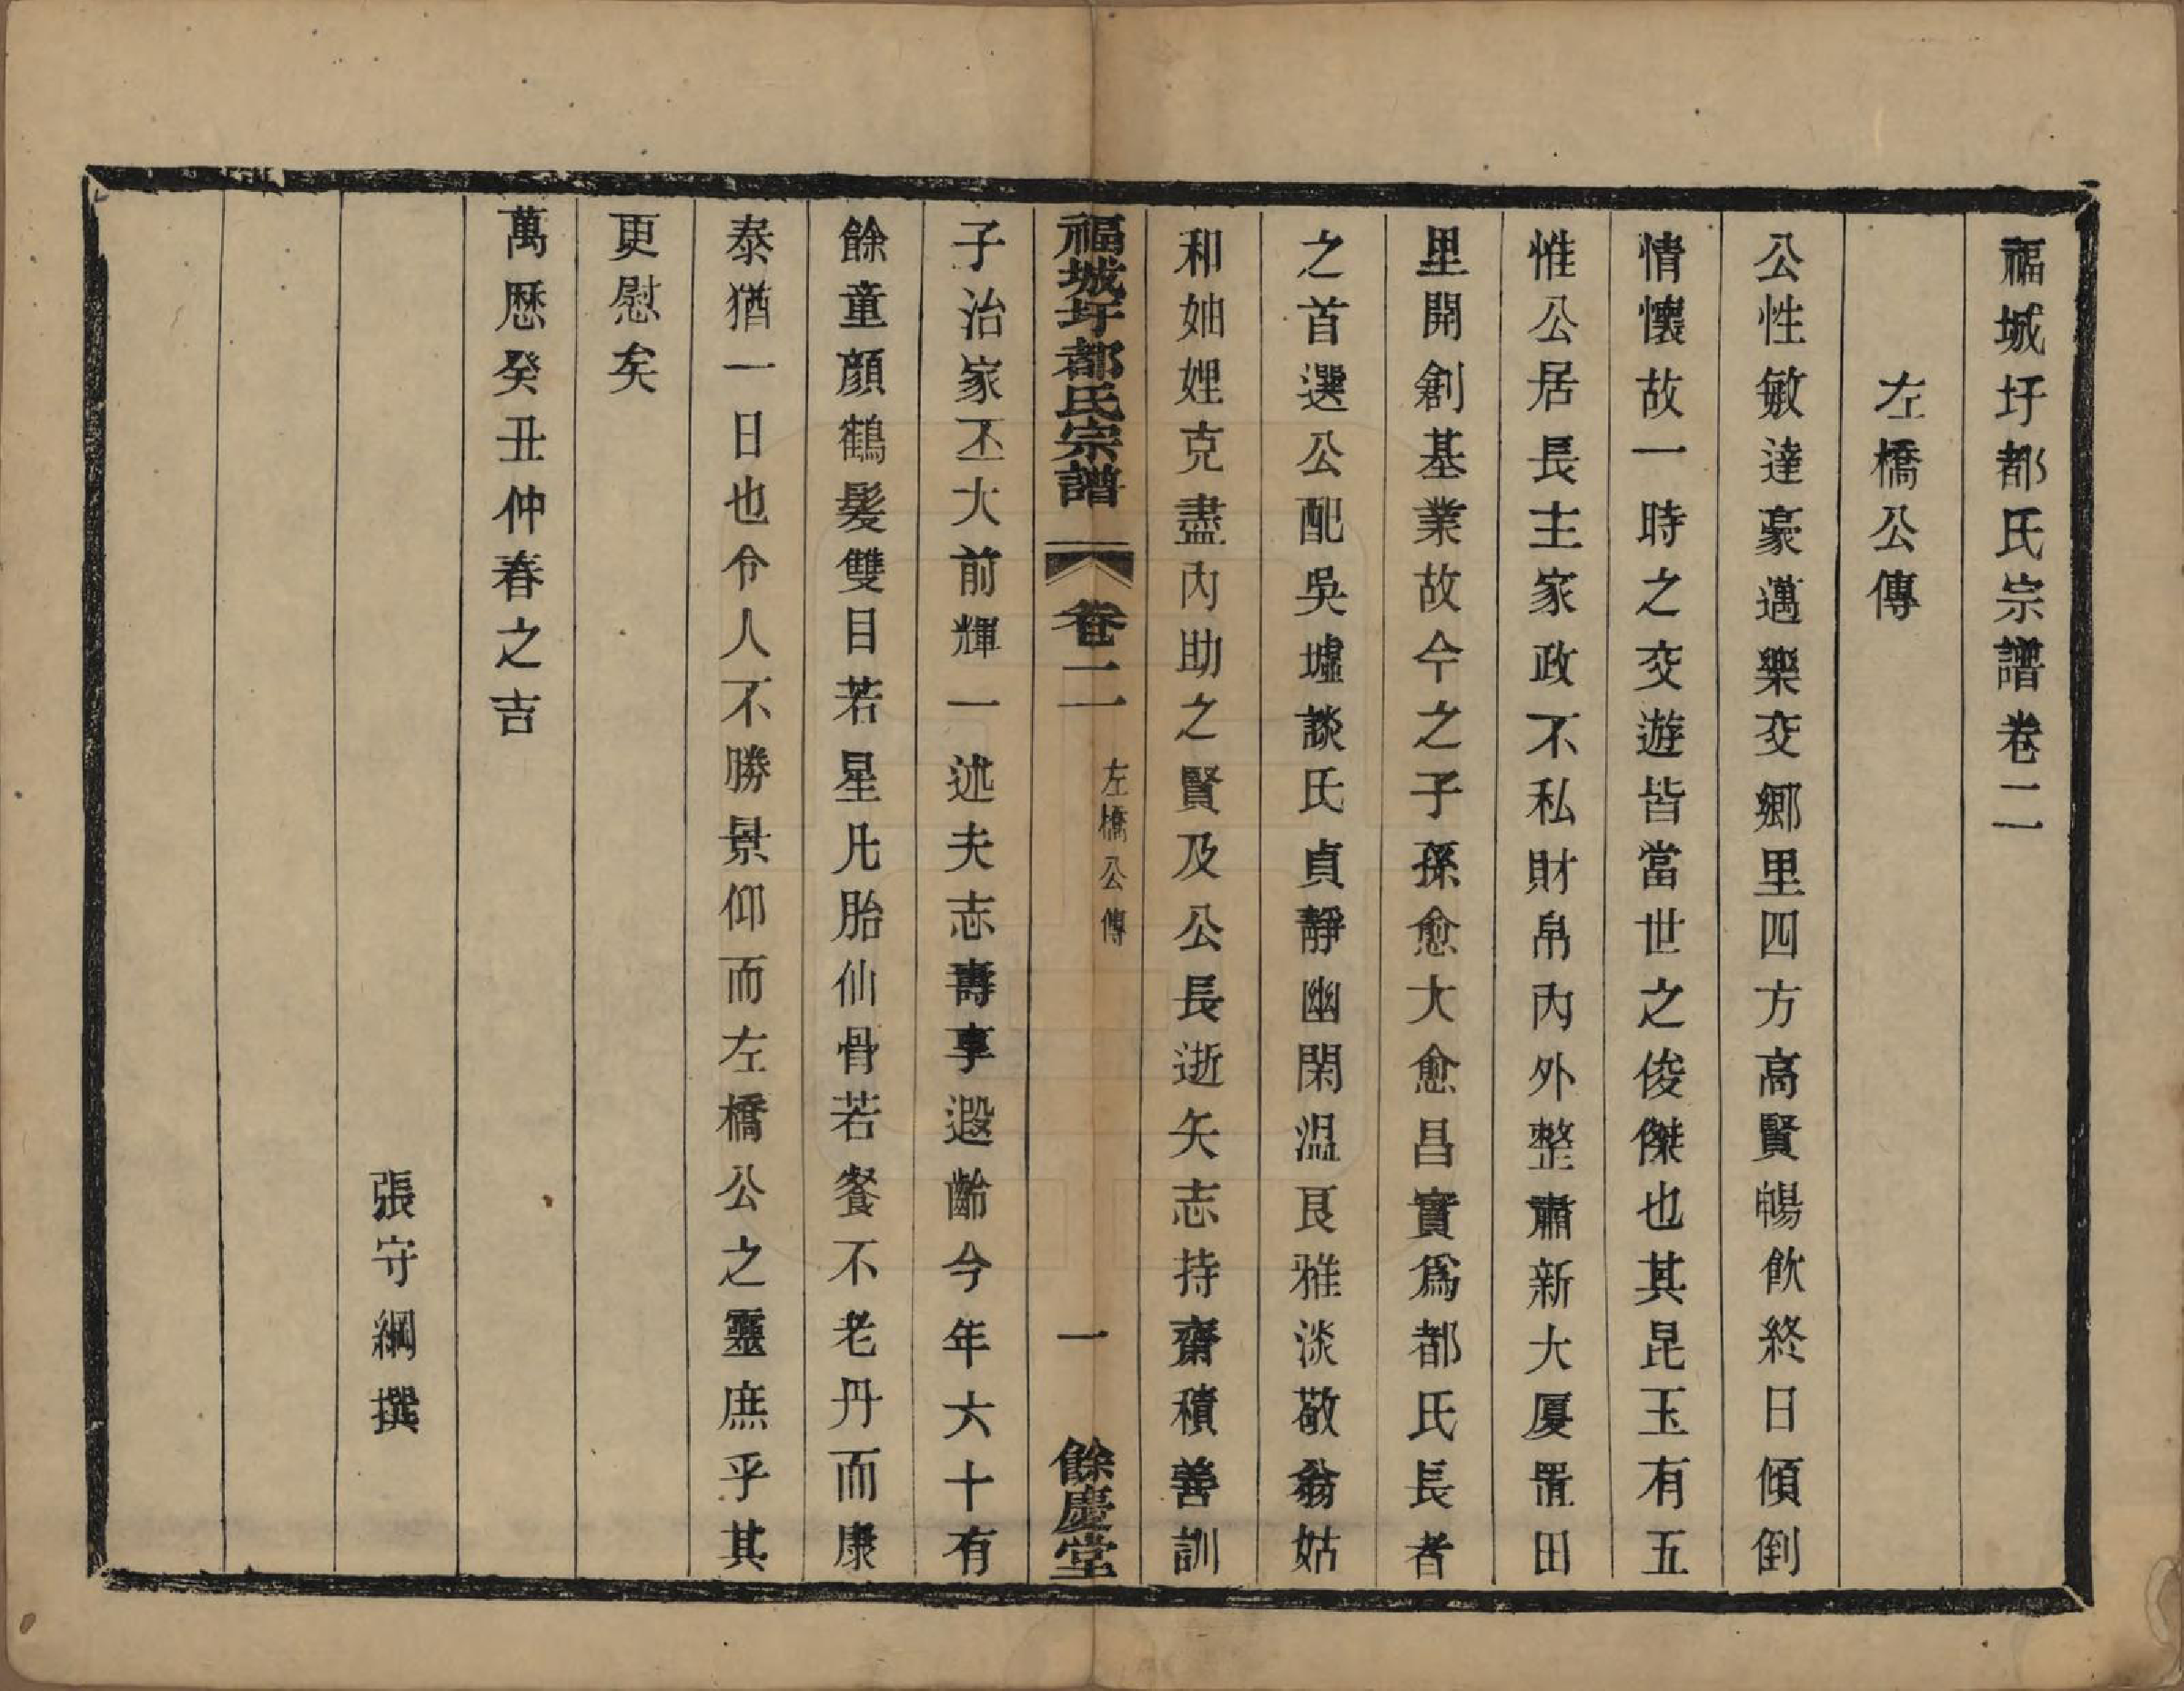 福城圩都氏宗譜卷二
左橋公傳
公性敏達豪邁樂交鄉里四方高賢暢飲終日傾倒
情懷故一時之交遊皆當世之俊傑也其昆玉有五
惟公居長主家政不私財帛內外整肅新大厦置田
里開創基業故今之子孫愈大愈昌實爲都氏長者
之首選公配吳墟談氏貞靜幽閑温良雅淡敬翁姑
和妯娌克盡內助之賢及公長逝矢志持齋積善訓
福城圩都氏宗譜
卷二
左橋公傳
一
餘慶堂
子治家丕大前輝一述夫志壽享遐齡今年六十有
餘童顏鶴髮雙目若星凡胎仙骨若餐不老丹而康
泰猶一日也令人不勝景仰而左橋公之靈庶乎其
更慰矣
萬歷癸丑仲春之吉
張守綱撰